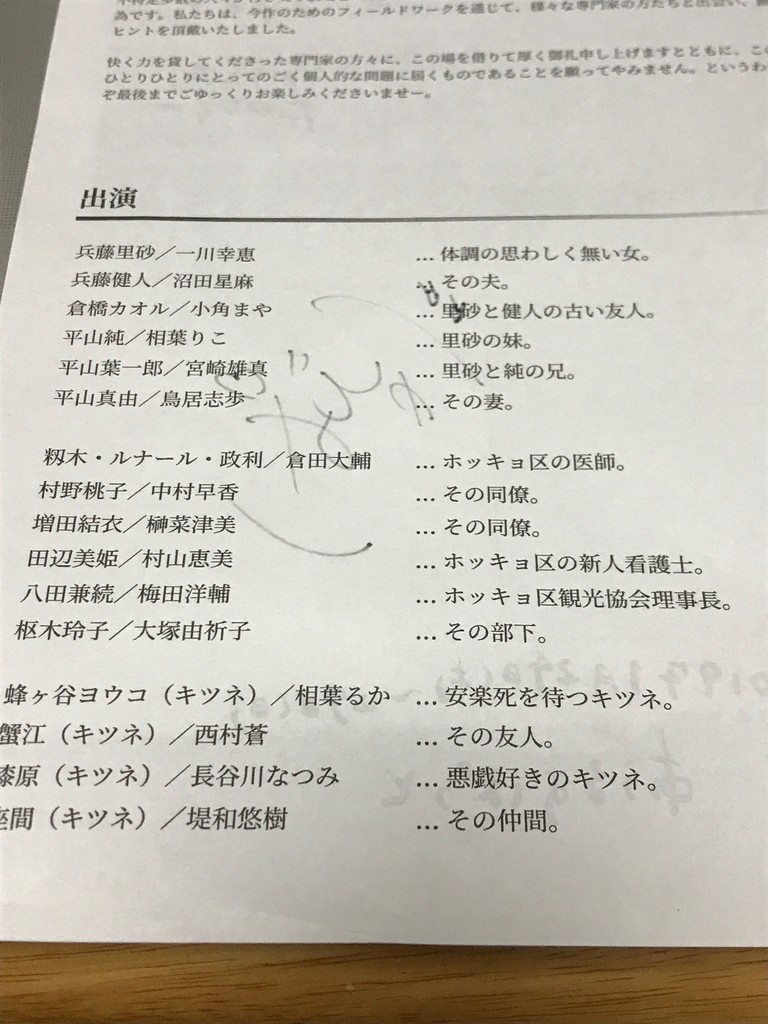 為です。私たちは、今作のためのフィールドワークを通じて、様々な専門家の方たちと出会い、
ヒントを頂戴いたしました。
快く力を貸してくださった専門家の方々に、この場を借りて厚く御礼申し上げますとともに、こ
ひとりひとりにとってのごく個人的な問題に届くものであることを願ってやみません。というわ
ぞ最後までごゆっくりお楽しみくださいませー。
出演
兵藤里砂／一川幸恵 … 体調の思わしく無い女。
兵藤健人／沼田星麻 … その夫。
倉橋カオル／小角まや … 里砂と健人の古い友人。
平山純／相葉りこ … 里砂の妹。
平山葉一郎／宮崎雄真 … 里砂と純の兄。
平山真由／鳥居志歩 … その妻。
籾木・ルナール・政利／倉田大輔 … ホッキョ区の医師。
村野桃子／中村早香 … その同僚。
増田結衣／榊菜津美 … その同僚。
田辺美姫／村山恵美 … ホッキョ区の新人看護士。
八田兼続／梅田洋輔 … ホッキョ区観光協会理事長。
枢木玲子／大塚由祈子 … その部下。
蜂ヶ谷ヨウコ（キツネ）／相葉るか … 安楽死を待つキツネ。
蟹江（キツネ）／西村蒼 … その友人。
漆原（キツネ）／長谷川なつみ … 悪戯好きのキツネ。
座間（キツネ）／堤和悠樹 … その仲間。